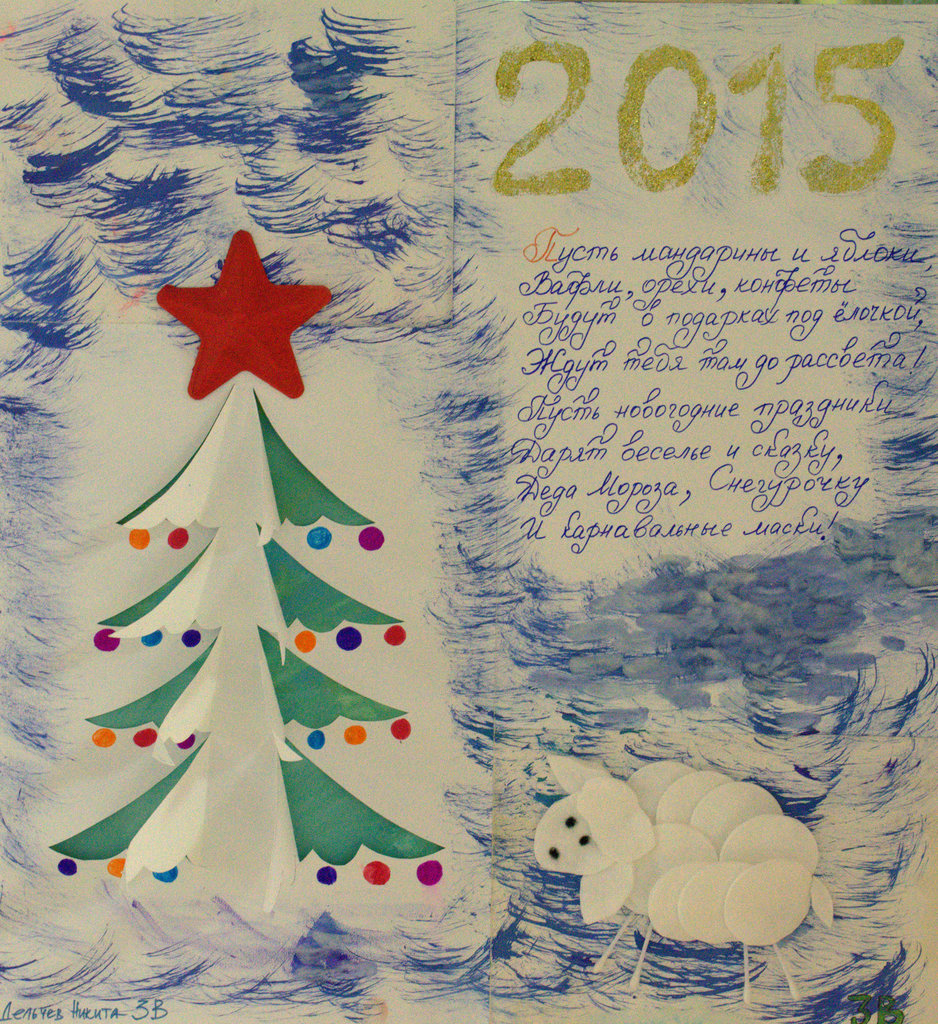 2015
Пусть мандарины и яблоки,
Вафли, орехи, конфеты
Будут в подарках под ёлочкой,
Ждут тебя там до рассвета!
Пусть новогодние праздники
Дарят веселье и сказку,
Деда Мороза, Снегурочку
И карнавальные маски!
Никита 3В
3В